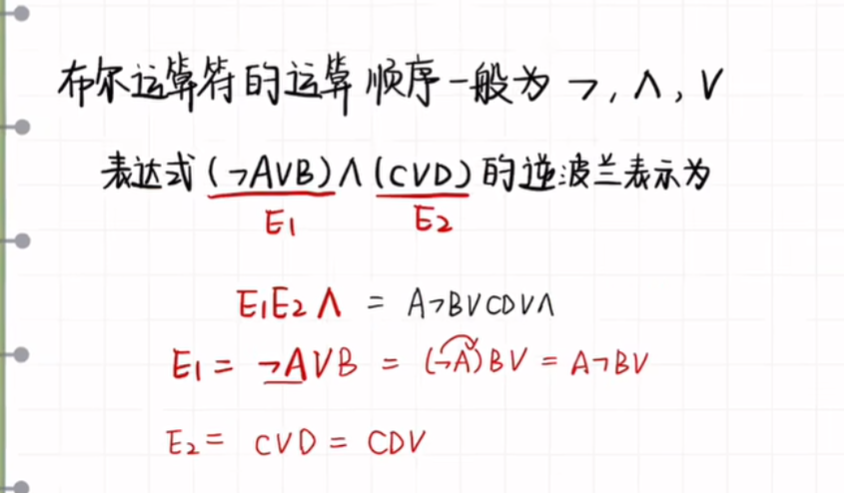 布尔运算符的运算顺序一般为 ¬, ∧, ∨
表达式 (¬A∨B)∧(C∨D) 的逆波兰表示为
E₁ E₂
E₁E₂∧ = A¬B∨CD∨∧
E₁ = ¬A∨B = (¬A)B∨ = A¬B∨
E₂ = C∨D = CD∨